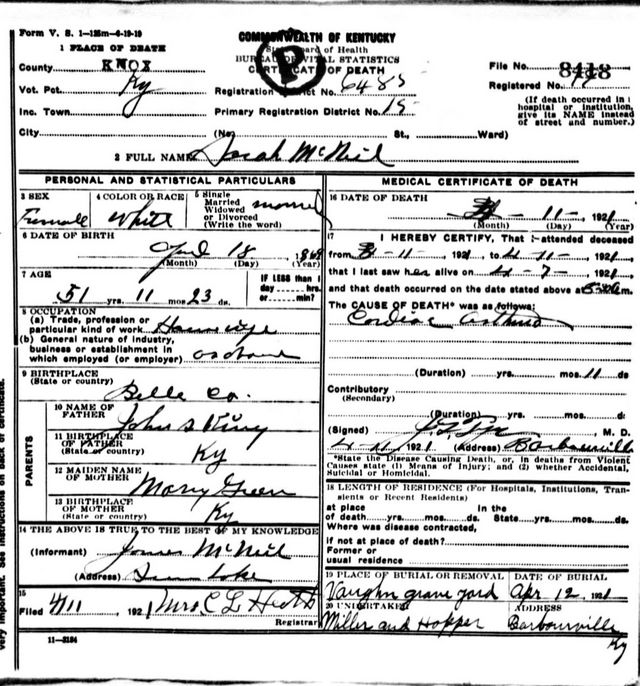 Form V. S. 1—125m—6-19-19
COMMONWEALTH OF KENTUCKY
State Board of Health
BUREAU OF VITAL STATISTICS
CERTIFICATE OF DEATH
P
1 PLACE OF DEATH
County KNOX
Vot. Pct. Ky
Inc. Town
City (No. St., Ward)
Registration District No. 6485
Primary Registration District No. 15
File No. 8418
Registered No.
(If death occurred in a
hospital or institution,
give its NAME instead
of street and number.)
2 FULL NAME Sarah McNeil
PERSONAL AND STATISTICAL PARTICULARS
3 SEX
Female
4 COLOR OR RACE
White
5 Single
Married
Widowed
or Divorced
(Write the word)
married
6 DATE OF BIRTH
April 18
(Month) (Day) (Year)
7 AGE
51 yrs. 11 mos. 23 ds.
IF LESS than 1
day ---- hrs.
or ---- min?
8 OCCUPATION
(a) Trade, profession or
particular kind of work Housewife
(b) General nature of industry,
business or establishment in
which employed (or employer)
9 BIRTHPLACE
(State or country)
Belle Co.
PARENTS
10 NAME OF
FATHER
John King
11 BIRTHPLACE
OF FATHER
(State or country)
Ky
12 MAIDEN NAME
OF MOTHER
Mary Green
13 BIRTHPLACE
OF MOTHER
(State or country)
Ky
14 THE ABOVE IS TRUE TO THE BEST OF MY KNOWLEDGE
(Informant) James McNeil
(Address)
15
Filed 4/11, 1921 Mrs C L Heath
Registrar
11—3184
MEDICAL CERTIFICATE OF DEATH
16 DATE OF DEATH
- 11 -, 1921
(Month) (Day) (Year)
17 I HEREBY CERTIFY, That I attended deceased
from 3-11-, 1921, to 4-11-, 1921,
that I last saw her alive on 4-7-, 1921,
and that death occurred on the date stated above at m.
The CAUSE OF DEATH* was as follows:
Cardiac Asthma
(Duration) yrs. mos. 11 ds
Contributory
(Secondary)
(Duration) yrs. mos. ds
(Signed) M. D.
4-11, 1921 (Address) Barbourville
*State the Disease Causing Death, or, in deaths from Violent
Causes state (1) Means of Injury; and (2) whether Accidental,
Suicidal or Homicidal.
18 LENGTH OF RESIDENCE (For Hospitals, Institutions, Tran-
sients or Recent Residents)
at place In the
of death yrs. mos. ds. State yrs. mos. ds.
Where was disease contracted,
if not at place of death?
Former or
usual residence
19 PLACE OF BURIAL OR REMOVAL
Vaughn grave yard
DATE OF BURIAL
Apr 12, 1921
20 UNDERTAKER
Miller and Hopper
ADDRESS
Barbourville
Ky
very important. See instructions on back of certificate.